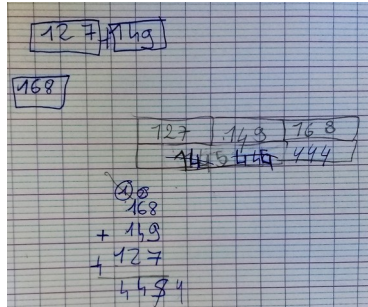 127+149
168
127 149 168
444
168
+ 149
+ 127